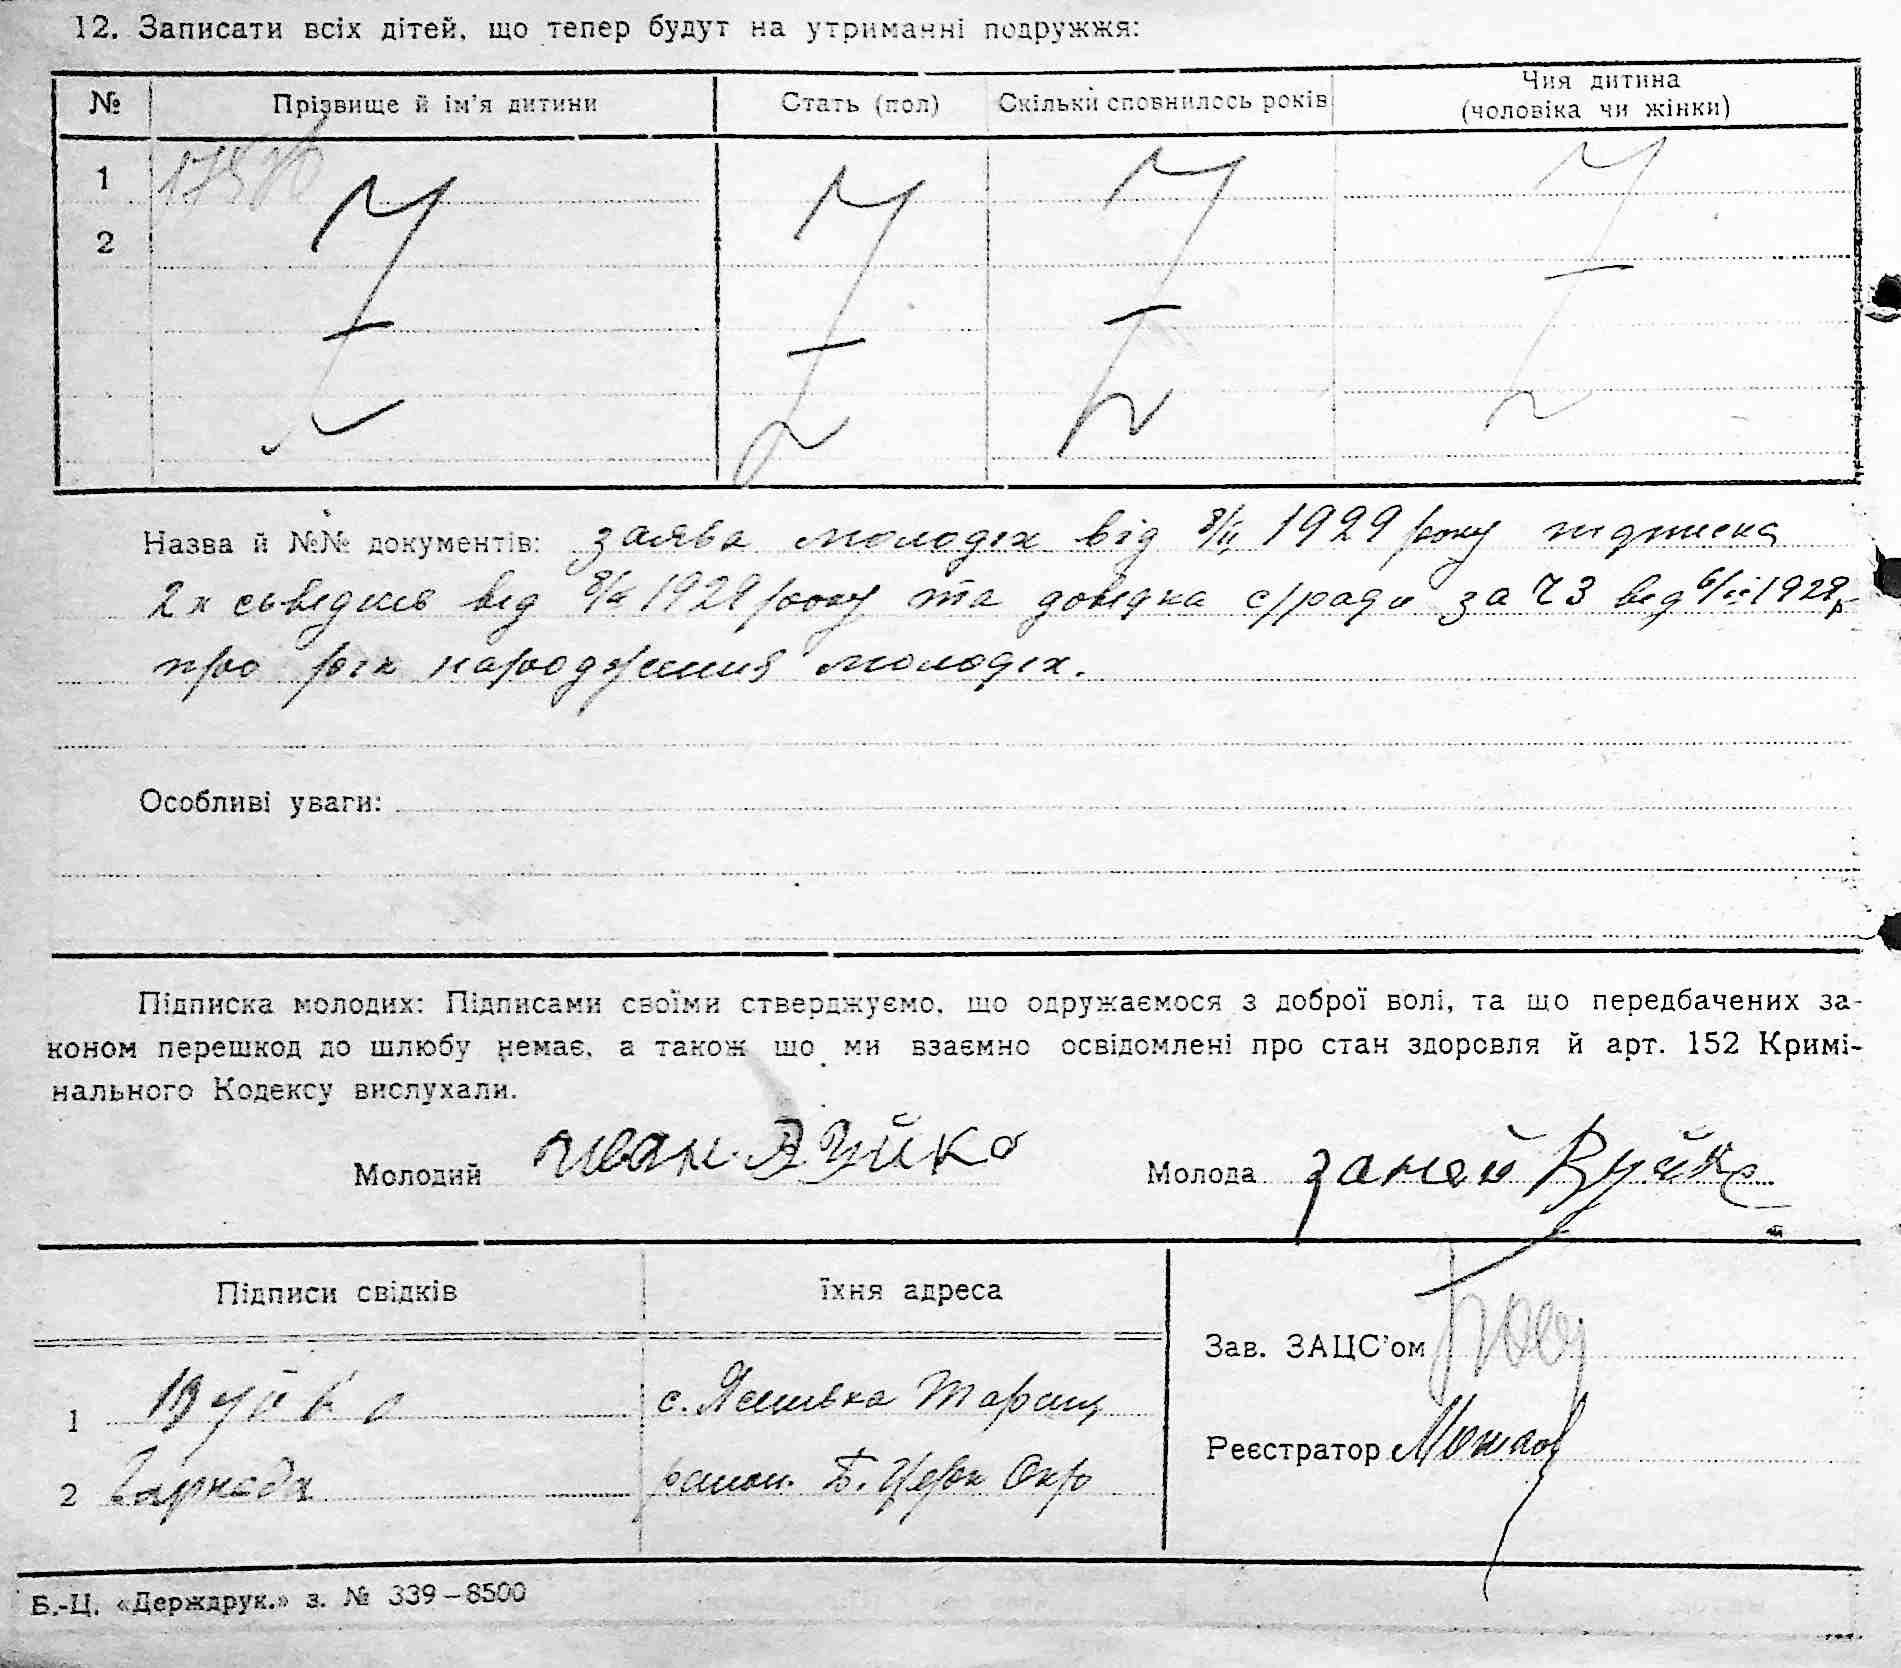 12. Записати всіх дітей, що тепер будут на утриманні подружжя:
№ Прізвище й ім’я дитини Стать (пол) Скільки сповнилось років Чия дитина (чоловіка чи жінки)
1
2
Назва й №№ документів: заява молодіх від 8/ІІ 1929 року підписка
2х сьвідків від 8/ІІ 1929 року та довідка с/ради за Ч 3 від 6/ІІ 1929 р
про рік народження молодіх.
Особливі уваги:
Підписка молодих: Підписами своїми стверджуємо, що одружаємося з доброї волі, та що передбачених за-
коном перешкод до шлюбу немає, а також що ми взаємно освідомлені про стан здоровля й арт. 152 Кримі-
нального Кодексу вислухали.
Молодий Иван Вуйко Молода Вуйко
Підписи свідків Їхня адреса
Зав. ЗАЦС’ом
1 Вуйко с. Ясинвка Таращ
Реєстратор
2 район. Б. Церк Окр
Б.-Ц. «Держдрук.» з. № 339–8500